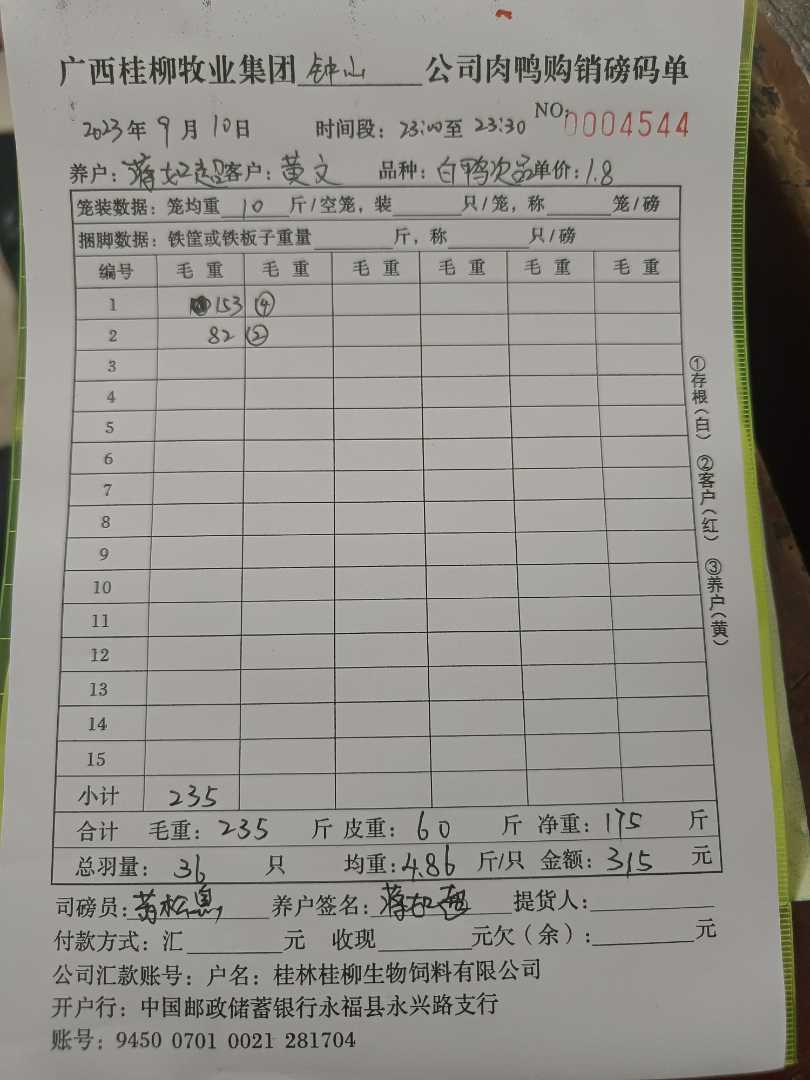 广西桂柳牧业集团钟山公司肉鸭购销磅码单
2023年9月10日 时间段：23:00至23:30 NO:0004544
养户：蒋如超 客户：黄文 品种：白鸭次品 单价：1.8
笼装数据：笼均重10斤/空笼，装____只/笼，称____笼/磅
捆脚数据：铁筐或铁板子重量____斤，称____只/磅
编号 毛重 毛重 毛重 毛重 毛重 毛重
1 153 ④
2 82 ②
3
4
5
6
7
8
9
10
11
12
13
14
15
小计 235
合计 毛重：235斤 皮重：60斤 净重：175斤
总羽量：36只 均重：4.86斤/只 金额：315元
司磅员： 养户签名：蒋如超 提货人：
付款方式：汇____元 收现____元欠（余）：____元
公司汇款账号：户名：桂林桂柳生物饲料有限公司
开户行：中国邮政储蓄银行永福县永兴路支行
账号：9450 0701 0021 281704
①存根（白） ②客户（红） ③养户（黄）